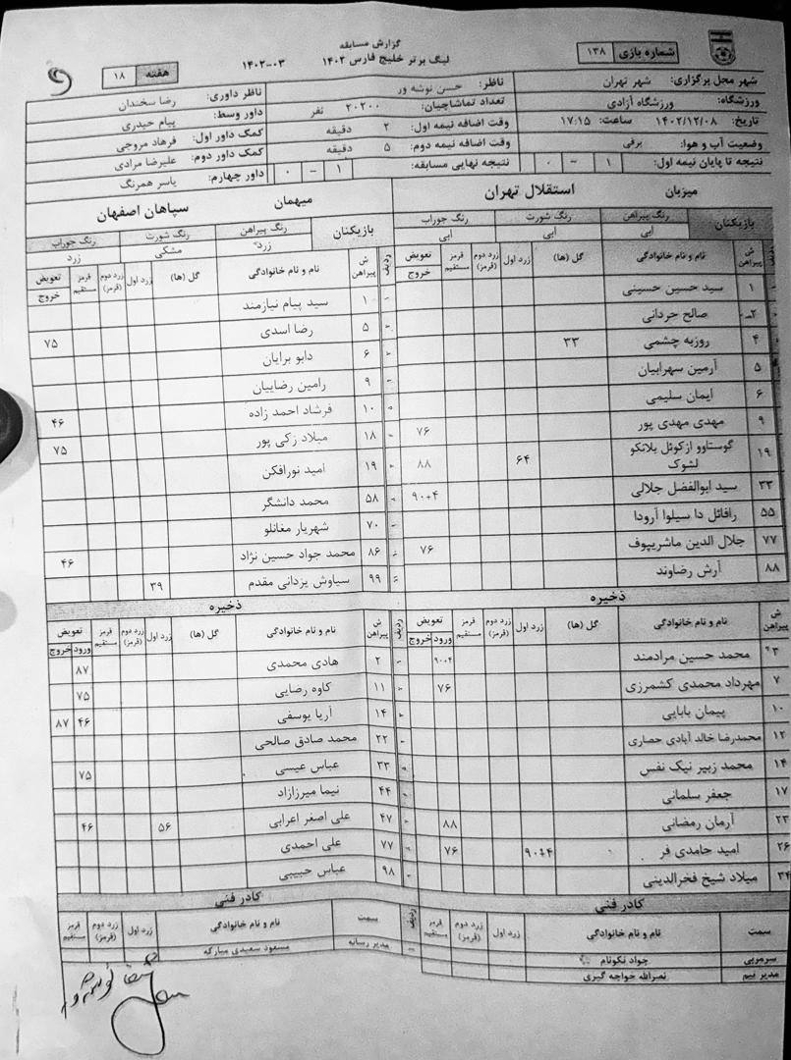 گزارش مسابقه
لیگ برتر خلیج فارس ۱۴۰۲ ۰۳-۱۴۰۲
شماره بازی ۱۳۸
هفته ۱۸
شهر محل برگزاری: شهر تهران
ورزشگاه: ورزشگاه آزادی
تاریخ: ۱۴۰۲/۱۲/۰۸ ساعت: ۱۷:۱۵
وضعیت آب و هوا: برفی
نتیجه تا پایان نیمه اول: ۱ - ۰
ناظر: حسن نوشه ور
تعداد تماشاچیان: ۲۰۲۰۰ نفر
وقت اضافه نیمه اول: ۲ دقیقه
وقت اضافه نیمه دوم: ۵ دقیقه
نتیجه نهایی مسابقه: ۱ - ۰
ناظر داوری: رضا سخندان
داور وسط: پیام حیدری
کمک داور اول: فرهاد مروجی
کمک داور دوم: علیرضا مرادی
داور چهارم: یاسر همرنگ
میزبان استقلال تهران
بازیکنان رنگ پیراهن رنگ شورت رنگ جوراب
آبی آبی آبی
ردیف ش پیراهن نام و نام خانوادگی گل (ها) زرد اول زرد دوم (قرمز) قرمز مستقیم تعویض خروج
۱ سید حسین حسینی
۲ صالح حردانی
۴ روزبه چشمی ۳۳
۵ آرمین سهرابیان
۶ ایمان سلیمی
۹ مهدی مهدی پور ۷۶
۱۹ گوستاوو ازکوئل بلانکو لشوک ۶۴ ۸۸
۳۳ سید ابوالفضل جلالی ۹۰+۴
۵۵ رافائل دا سیلوا آرودا
۷۷ جلال الدین ماشریپوف ۷۶
۸۸ آرش رضاوند
ذخیره
ش پیراهن نام و نام خانوادگی گل (ها) زرد اول زرد دوم (قرمز) قرمز مستقیم تعویض ورود خروج
۳ محمد حسین مرادمند ۹۰+۴
۷ مهرداد محمدی کشمرزی ۷۶
۱۰ پیمان بابایی
۱۲ محمدرضا خالد آبادی حصاری
۱۴ محمد زبیر نیک نفس
۱۷ جعفر سلمانی
۲۳ آرمان رمضانی ۸۸
۲۶ امید حامدی فر ۹۰+۴ ۷۶
۳۴ میلاد شیخ فخرالدینی
کادر فنی
سمت نام و نام خانوادگی زرد اول زرد دوم (قرمز) قرمز مستقیم
سرمربی جواد نکونام
مدیر تیم نصرالله خواجه گیری
میهمان سپاهان اصفهان
بازیکنان رنگ پیراهن رنگ شورت رنگ جوراب
زرد مشکی زرد
ردیف ش پیراهن نام و نام خانوادگی گل (ها) زرد اول زرد دوم (قرمز) قرمز مستقیم تعویض خروج
۱ سید پیام نیازمند
۵ رضا اسدی ۷۵
۶ دابو برایان
۹ رامین رضاییان
۱۰ فرشاد احمد زاده ۴۶
۱۸ میلاد زکی پور ۷۵
۱۹ امید نورافکن
۵۸ محمد دانشگر
۷۰ شهریار مغانلو
۸۶ محمد جواد حسین نژاد ۴۶
۹۹ سیاوش یزدانی مقدم ۳۹
ذخیره
ردیف ش پیراهن نام و نام خانوادگی گل (ها) زرد اول زرد دوم (قرمز) قرمز مستقیم تعویض ورود خروج
۲ هادی محمدی ۸۷
۱۱ کاوه رضایی ۷۵
۱۴ آریا یوسفی ۴۶ ۸۷
۲۲ محمد صادق صالحی
۳۳ عباس عیسی ۷۵
۴۴ نیما میرزازاد
۴۷ علی اصغر اعرابی ۵۶ ۴۶
۷۷ علی احمدی
۹۸ عباس حبیبی
کادر فنی
ردیف سمت نام و نام خانوادگی زرد اول زرد دوم (قرمز) قرمز مستقیم
مدیر رسانه مسعود سعیدی مبارکه